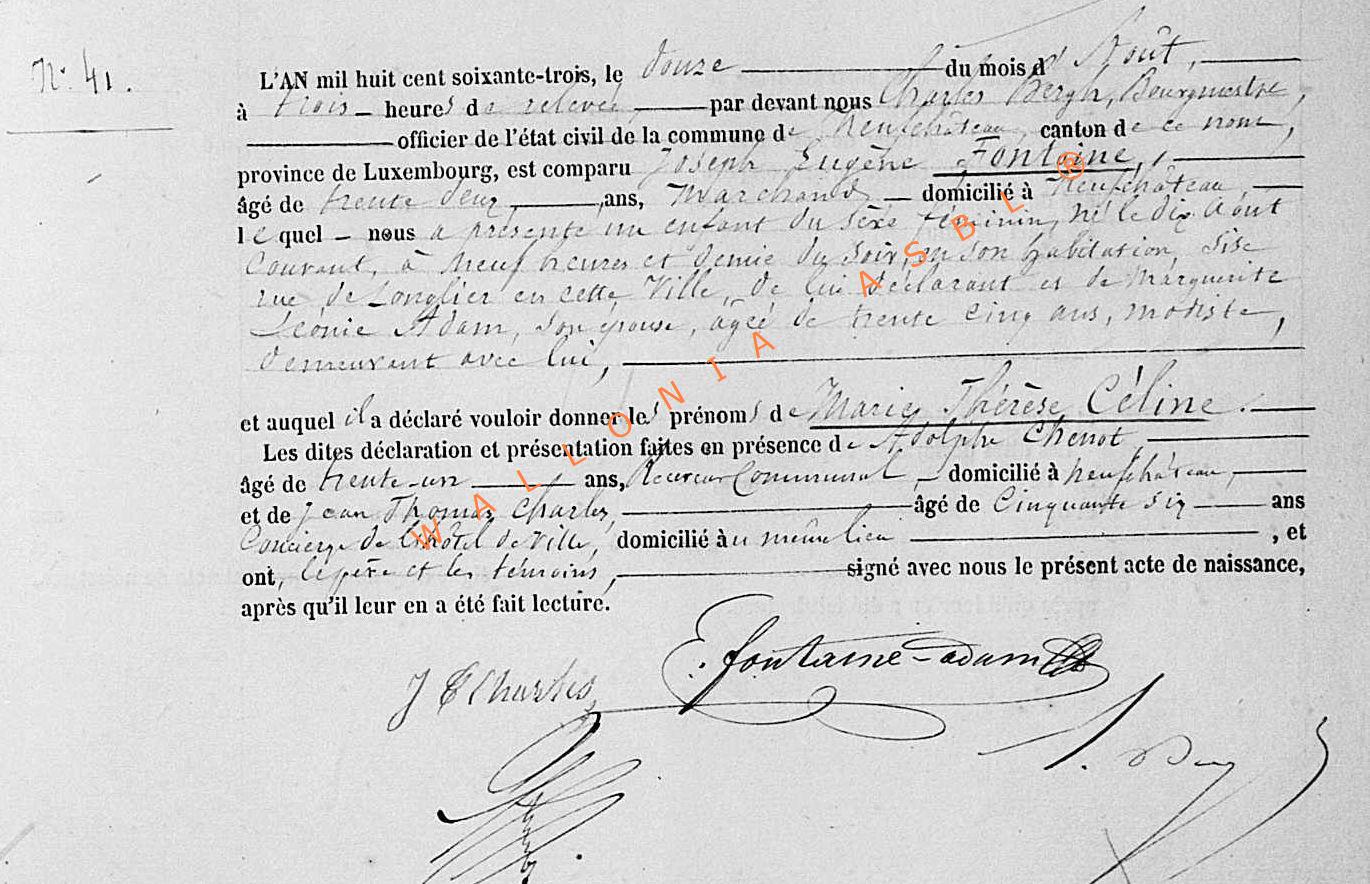 N° 41.
L'AN mil huit cent soixante-trois, le douze du mois d'Août,
à trois heures de relevée, par devant nous Charles Bergh, Bourgmestre,
officier de l'état civil de la commune de Neufchâteau, canton de ce nom,
province de Luxembourg, est comparu Joseph Eugène Fontaine,
âgé de trente deux, ans, Marchand domicilié à Neufchâteau,
lequel nous a présenté un enfant du sexe féminin, né le dix Août
courant, à neuf heures et demie du soir, en son habitation, sise
rue de Longlier en cette Ville, de lui déclarant et de Marguerite
Léonie Adam, son épouse, âgée de trente cinq ans, modiste,
demeurant avec lui,
et auquel il a déclaré vouloir donner les prénoms de Marie Thérèse Céline.
Les dites déclaration et présentation faites en présence de Adolphe Chenot,
âgé de trente-un ans, Receveur Communal domicilié à Neufchâteau,
et de Jean Thomas Charles, âgé de Cinquante six ans
Concierge de l'hôtel de Ville, domicilié au même lieu , et
ont, le père et les témoins, signé avec nous le présent acte de naissance,
après qu'il leur en a été fait lecture.
E. fontaine-adam
J T Charles
WALLONIA ASBL ®